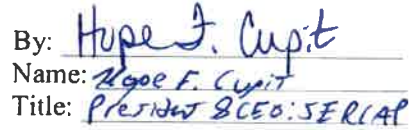 By: Hope F. Cupit
Name: Hope F. Cupit
Title: President & CEO: SERCAP